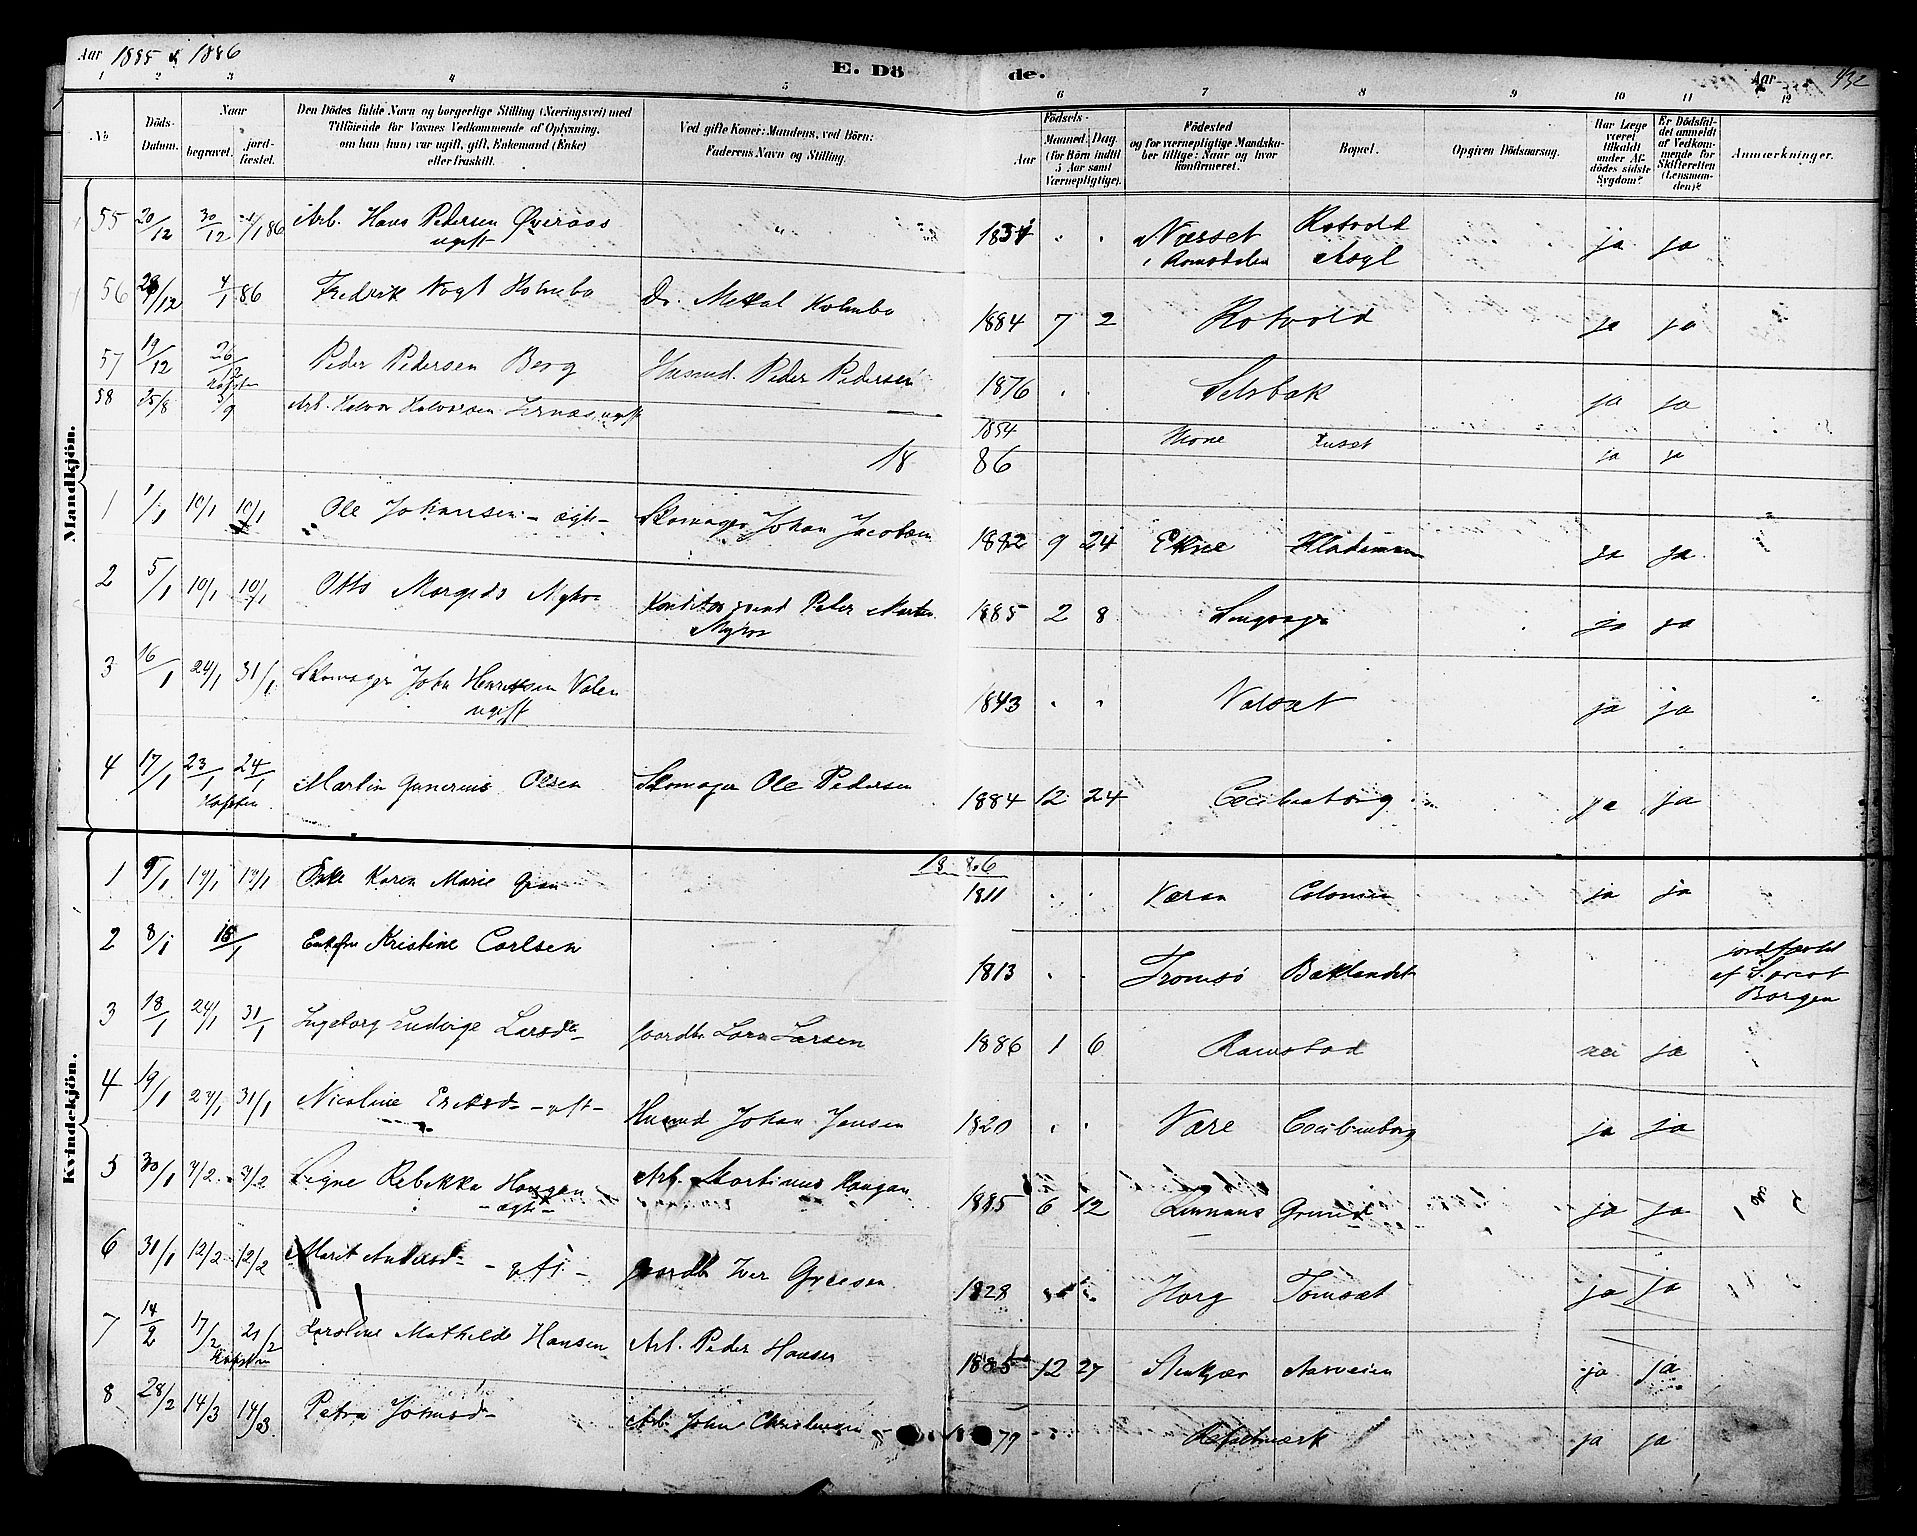 Aar 1885 & 1886
E. Dö de.
Aar 432
1 2 3 4 5 6 7 8 9 10 11 12
No. Döds-Datum. Naar begravet. jord-fæstet.
Den Dödes fulde Navn og borgerlige Stilling (Næringsvei) med Tilföiende for Voxnes Vedkommende af Oplysning, om han (hun) var ugift, gift, Enkemand (Enke) eller fraskilt.
Ved gifte Koner: Mandens, ved Börn: Faderens Navn og Stilling.
Födsels- Aar Maaned. Dag. (for Börn indtil 5 Aar samt Værnepligtige).
Födested og for værnepligtige Mandskaber tillige: Naar og hvor konfirmeret.
Bopæl.
Opgiven Dödsaarsag.
Har Læge været tilkaldt under Afdödes sidste Sygdom?
Er Dödsfaldet anmeldt af Vedkommende for Skifteretten (Lensmanden)?
Anmærkninger.
Mandkjön.
55 20/12 30/12 1/1 86 Arb. Hans Pedersen Överaas ugift " 1834 Næsset i Romsdalen Rotvold Asyl ja ja
56 29/12 4/1 86 Fredrik Vogt Holmbo Dr. Metal Holmbo 1884 7 2 Rotvold ja ja
57 19/12 26/12 Peder Pedersen Berg Husmd. Peder Pedersen 1876 Selsbak ja ja
58 25/8 5/9 Arb. Halvor Halvorsen ugift 1854 ja ja
18 86
1 1/1 10/1 10/1 Ole Johansen - ægte - Skomager Johan Jacobsen 1882 9 24 Ekne Hladsmoen ja ja
2 5/1 10/1 10/1 Otto Myhre Konditorsvend Peter Martin Myhre 1885 2 8 Singsager ja ja
3 16/1 24/1 31/1 Skomager John Henriksen Valen ugift 1843 Valsæt ja ja
4 17/1 23/1 24/1 Martin Gunerius Olsen Skomager Ole Pedersen 1884 12 24 Cecilienborg ja ja
Kvindekjön.
1886
1 9/1 17/1 17/1 Enke Karen Marie Gran 1811 Væran Colonien ja ja
2 8/1 15/1 Enkefru Kristine Carlsen 1813 Tromsö Baklandet jordfæstet af S. prest Borgen
3 18/1 24/1 31/1 Ingeborg Ludvige Larsd. Gaardbr. Lars Larsen 1886 1 6 Ramstad nei ja
4 19/1 27/1 31/1 Nicoline Eriksd. - gft - Husmd Johan Jensen 1820 Være Cecilienborg ja ja
5 30/1 7/2 7/2 Signe Rebekka Haugan - ægte - Arb. Martinus Haugan 1885 6 12 Grund ja ja
6 31/1 12/2 12/2 Marit Andersd. - gft - Gaardbr Iver 1828 Horg Tomset ja ja
7 14/2 17/2 21/2 Karoline Mathilde Hansen Arb. Peder Hansen 1885 12 27 Stenkjær Aasveien ja ja
8 28/2 14/3 14/3 Petra Johnsd. Arb. John Christensen 79 ja ja